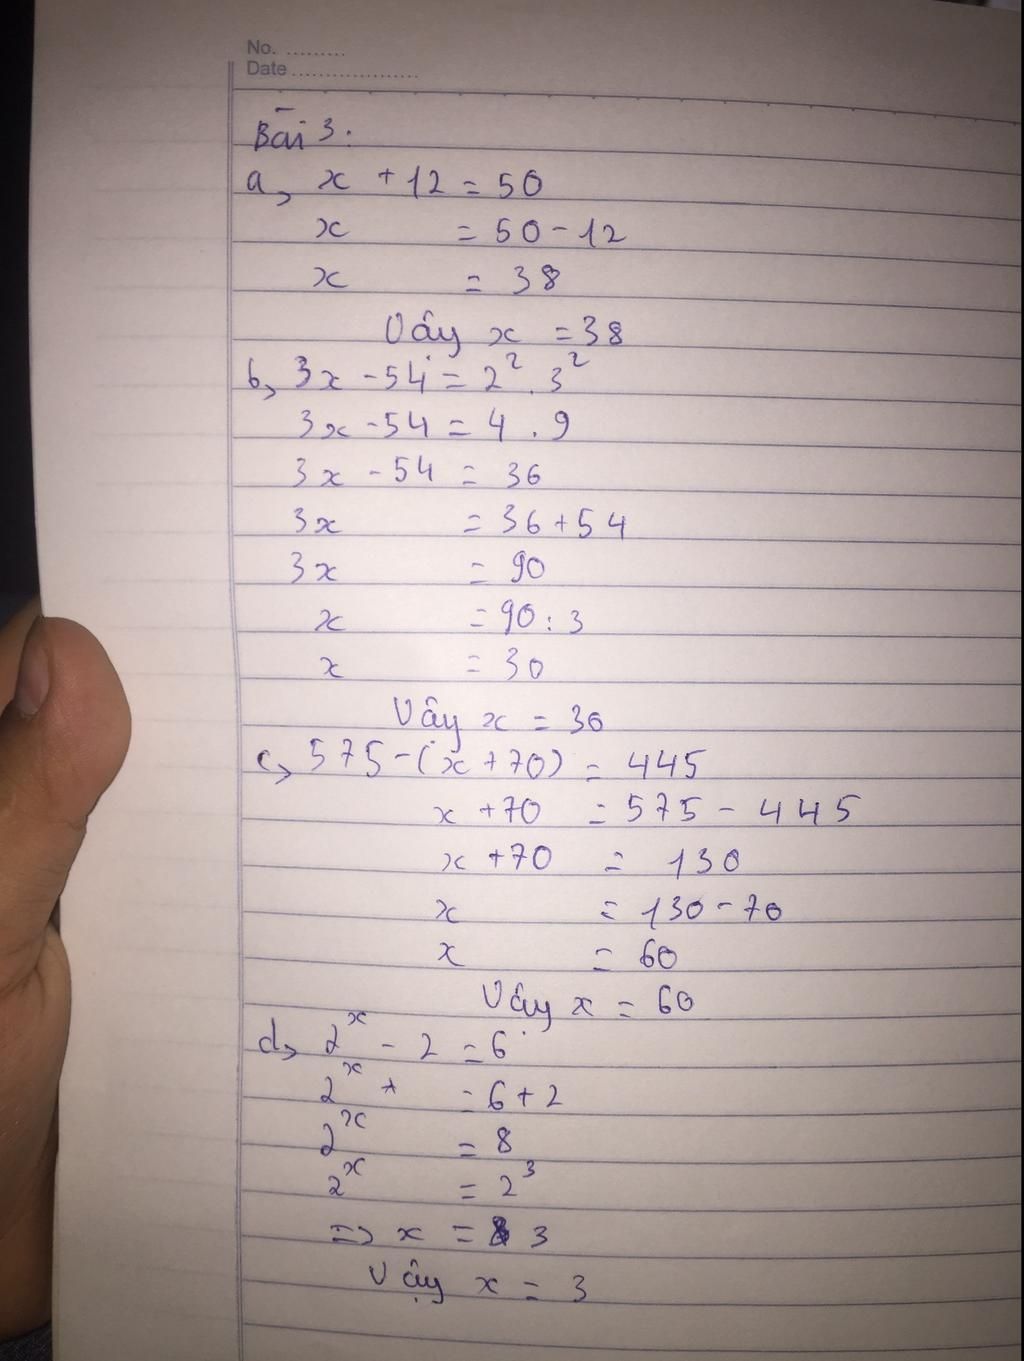 No. .........
Date ...................
Bài 3:
a, x + 12 = 50
x = 50 - 12
x = 38
Vậy x = 38
b, 3x - 54 = 2² . 3²
3x - 54 = 4 . 9
3x - 54 = 36
3x = 36 + 54
3x = 90
x = 90 : 3
x = 30
Vậy x = 30
c, 575 - (x + 70) = 445
x + 70 = 575 - 445
x + 70 = 130
x = 130 - 70
x = 60
Vậy x = 60
d, 2ˣ - 2 = 6
2ˣ + = 6 + 2
2ˣ = 8
2ˣ = 2³
=> x = 3
Vậy x = 3